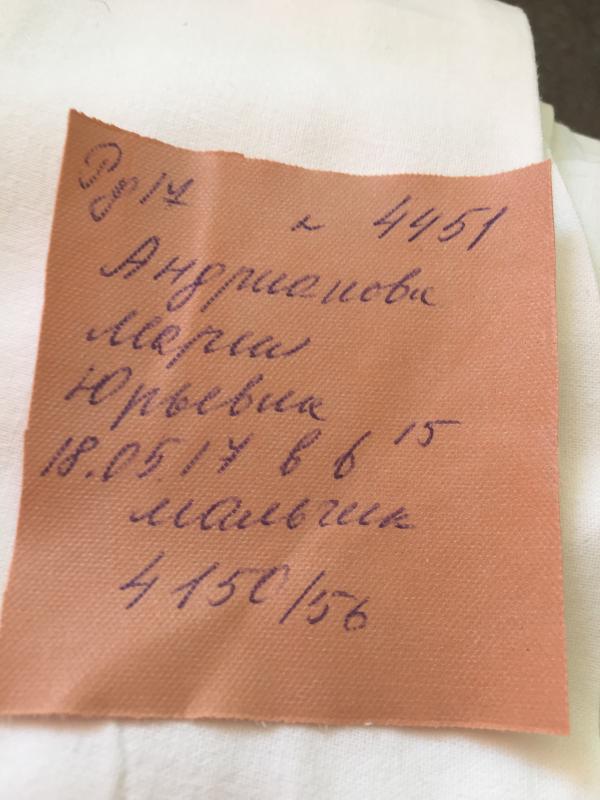 Рд 17 № 4451
Андрианова
Мария
Юрьевна
18.05.17 в 6 15
мальчик
4150/56